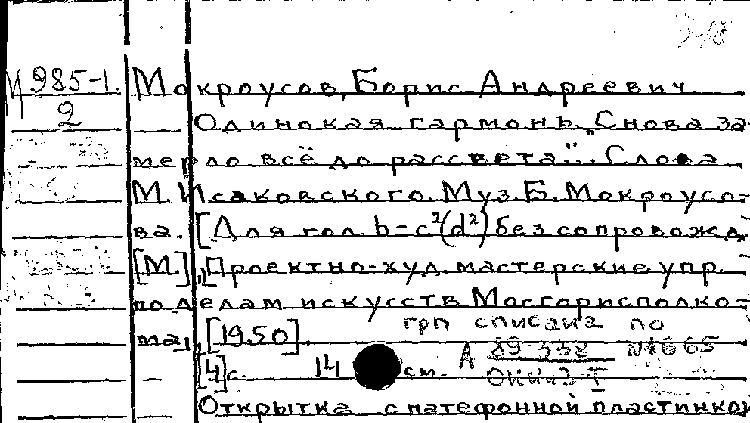 М 985-1
2
Мокроусов, Борис Андреевич
Одинокая гармонь „Снова за-
мерло всё до рассвета“... Слова
М. Исаковского. Муз. Б. Мокроусо-
ва. [Для гол. b-c²(d²) без сопровожд.]
[М.], Проектно-худ. мастерские упр.
по делам искусств Мосгорисполко-
ма, [1950].
грп списана по
[4] с. 14 см. А 89-338 №1665
Открытка с патефонной пластинкой